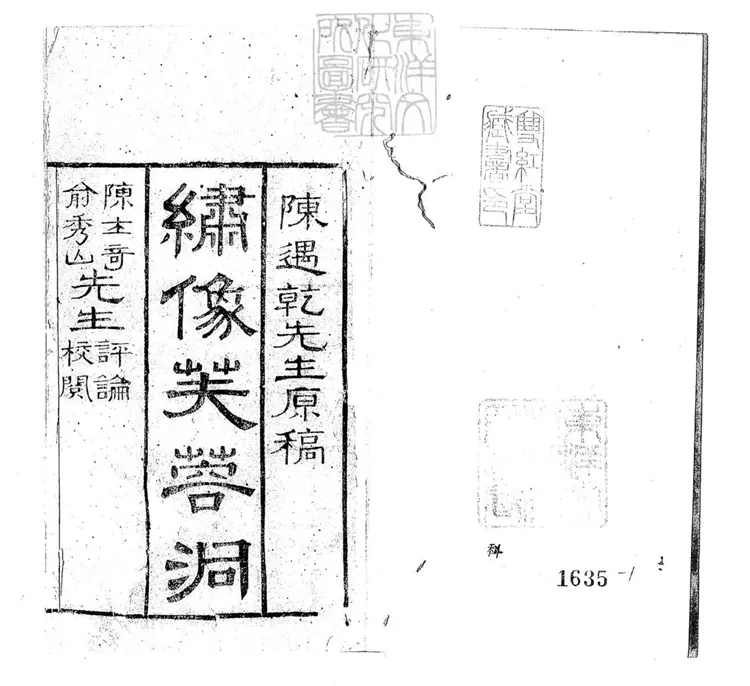 東洋文
化研究
所圖書
雙紅堂
藏書印
東洋
科
1635-1
陳遇乾先生原稿
繡像芙蓉洞
陳士奇
俞秀山
先生
評論
校閱